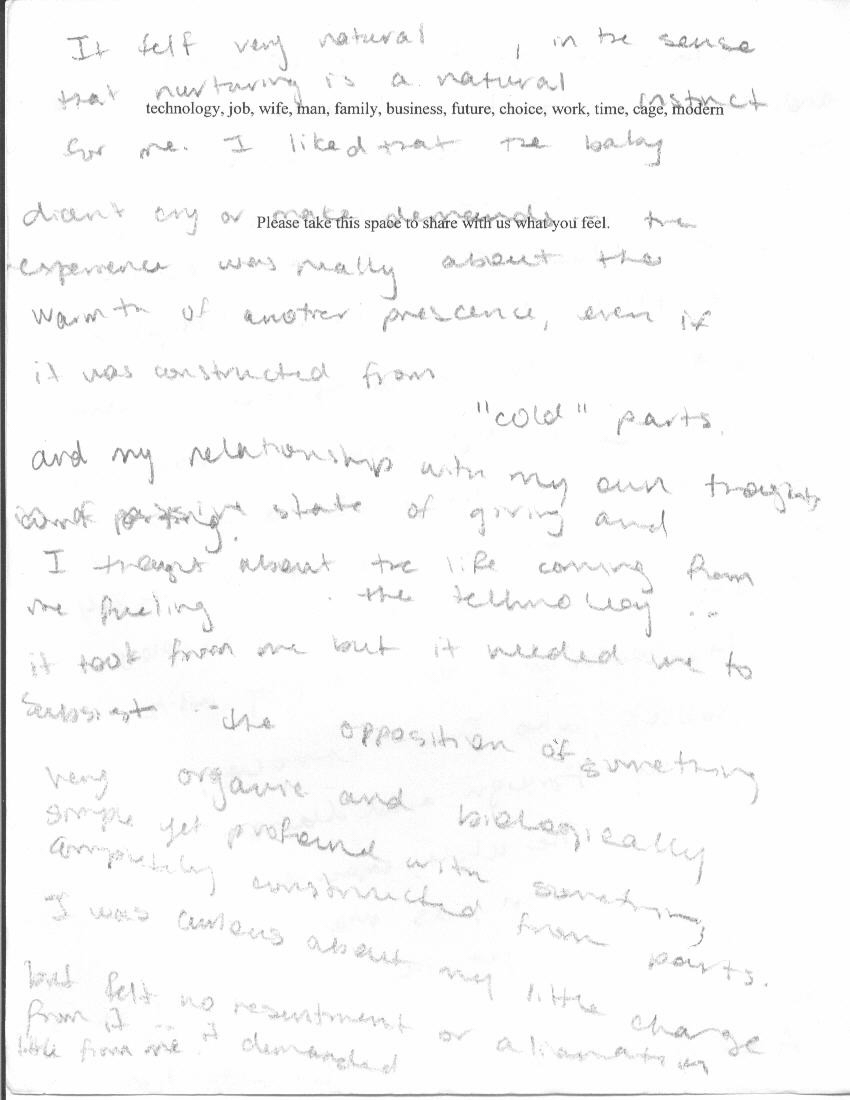 It felt very natural , in the sense
that nurturing is a natural instinct
technology, job, wife, man, family, business, future, choice, work, time, cage, modern
for me. I liked that the baby
didn't cry or make demands the
Please take this space to share with us what you feel.
experience was really about the
warmth of another prescence, even if
it was constructed from
"cold" parts.
and my relationship with my own thoughts
state of giving and
I thought about the life coming from
me fueling the technology ..
it took from me but it needed me to
subsist -- the opposition of something
very organic and biologically
simple yet profound with something
completely constructed from parts.
I was curious about my little charge
but felt no resentment or alianation
from it -- it demanded
little from me